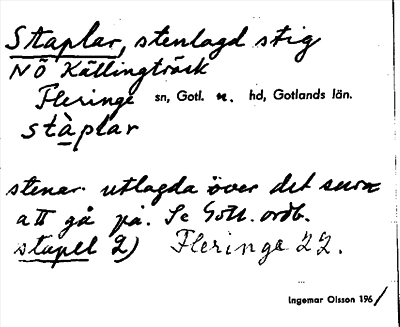 Staplar, stenlagd stig
NÖ Källingträsk
Fleringe sn, Gotl. n. hd, Gotlands län.
stàplar
stenar utlagda över det sura
att gå på. Se Gotl. ordb.
stapel 2) Fleringe 22.
Ingemar Olsson 1961